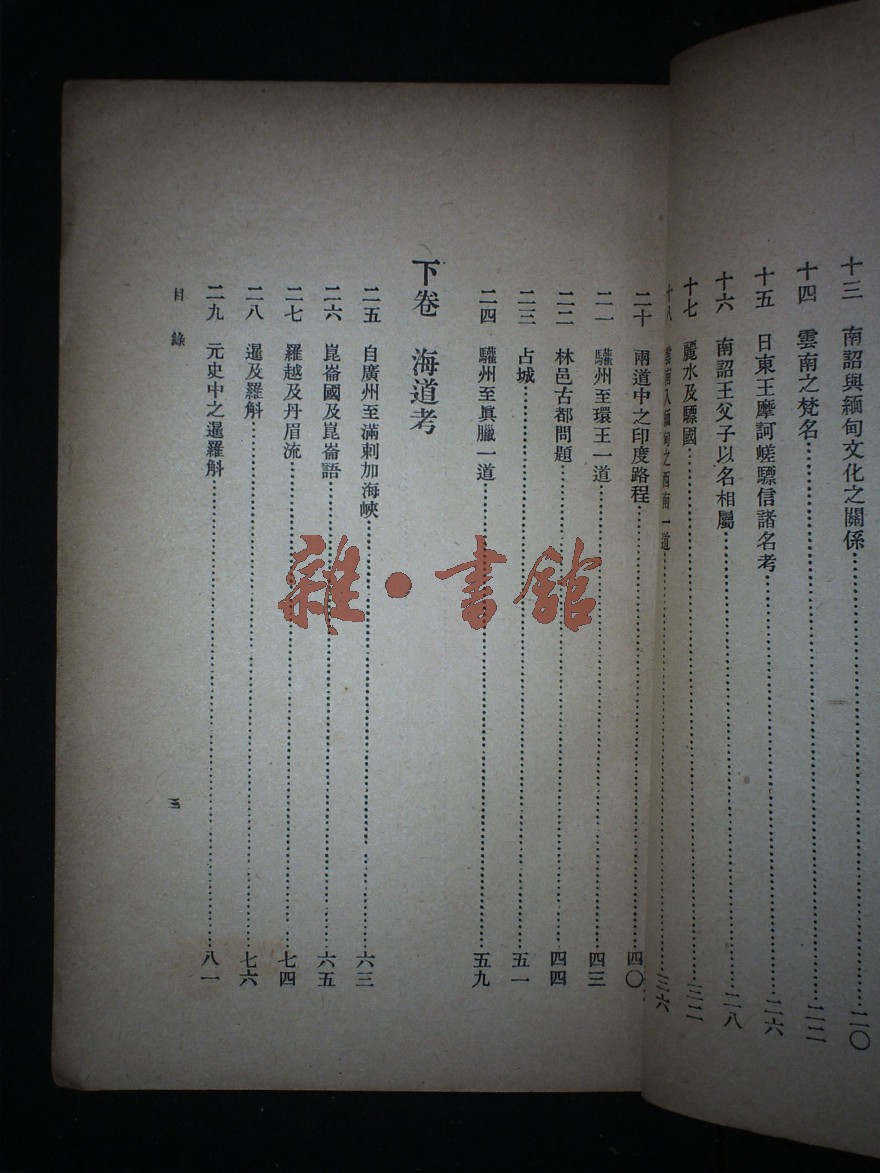 十三 南詔與緬甸文化之關係……二〇
十四 雲南之梵名……二二
十五 日東王摩訶嵯驃信諸名考……二六
十六 南詔王父子以名相屬……二八
十七 麗水及驃國……三二
十八 雲南入緬甸之西南一道……三六
二十 兩道中之印度路程……四〇
二一 驩州至環王一道……四三
二二 林邑古都問題……四四
二三 占城……五一
二四 驩州至眞臘一道……五九
下卷 海道考
二五 自廣州至滿剌加海峽……六三
二六 崑崙國及崑崙語……六五
二七 羅越及丹眉流……七四
二八 暹及羅斛……七六
二九 元史中之暹羅斛……八一
目錄
三
雜·書館